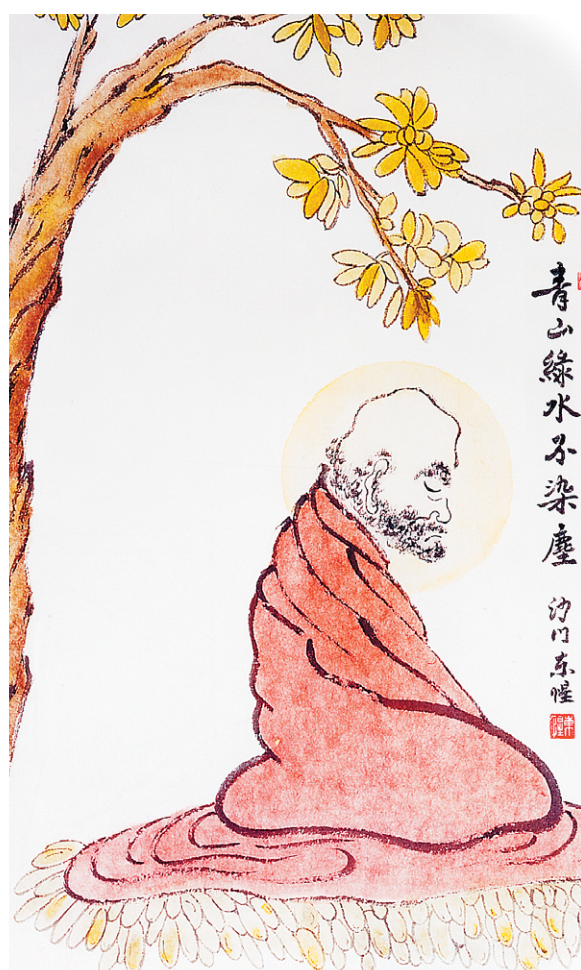 青山緑水不染塵
沙门东惺